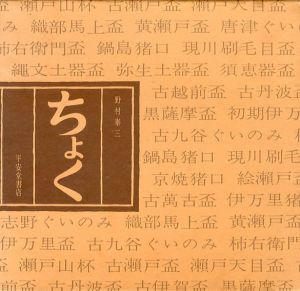 瀬戸山杯 古瀬戸盃 瀬戸天目盃
のみ 織部馬上盃 黄瀬戸盃 唐津ぐい
柿右衛門盃 鍋島猪口 現川刷毛目
縄文土器盃 弥生土器盃 須恵器盃
古越前盃 古丹波
黒薩摩盃 初期伊万
古九谷ぐいのみ
鍋島猪口 現川刷毛
京焼猪口 絵瀬戸
古萬古盃 伊万里猪
野村泰三
ちょく
平安堂書店
志野ぐいのみ 織部馬上盃 黄瀬戸盃
伊万里盃 古九谷ぐいのみ 柿右衛門
瀬戸山杯 古瀬戸盃 瀬戸天目盃
古丹波盃 古伊賀盃 黒薩摩盃